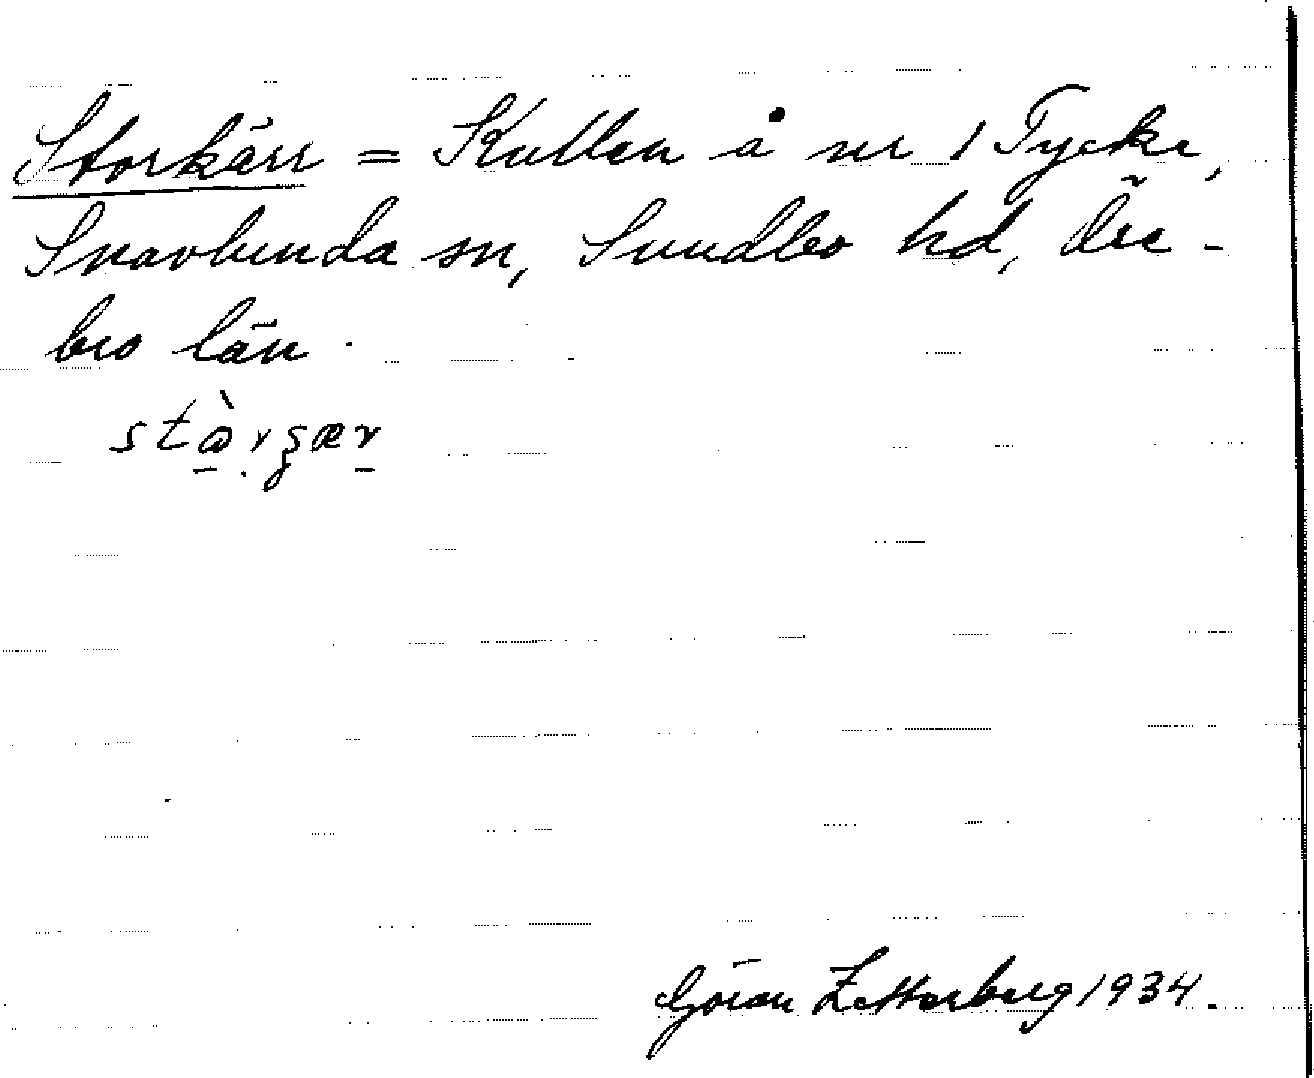 Storkärr = Kullen å nr 1 Tycke,
Snavlunda sn, Sundbo hd, Öre-
bro län.
Göran Zetterberg 1934.